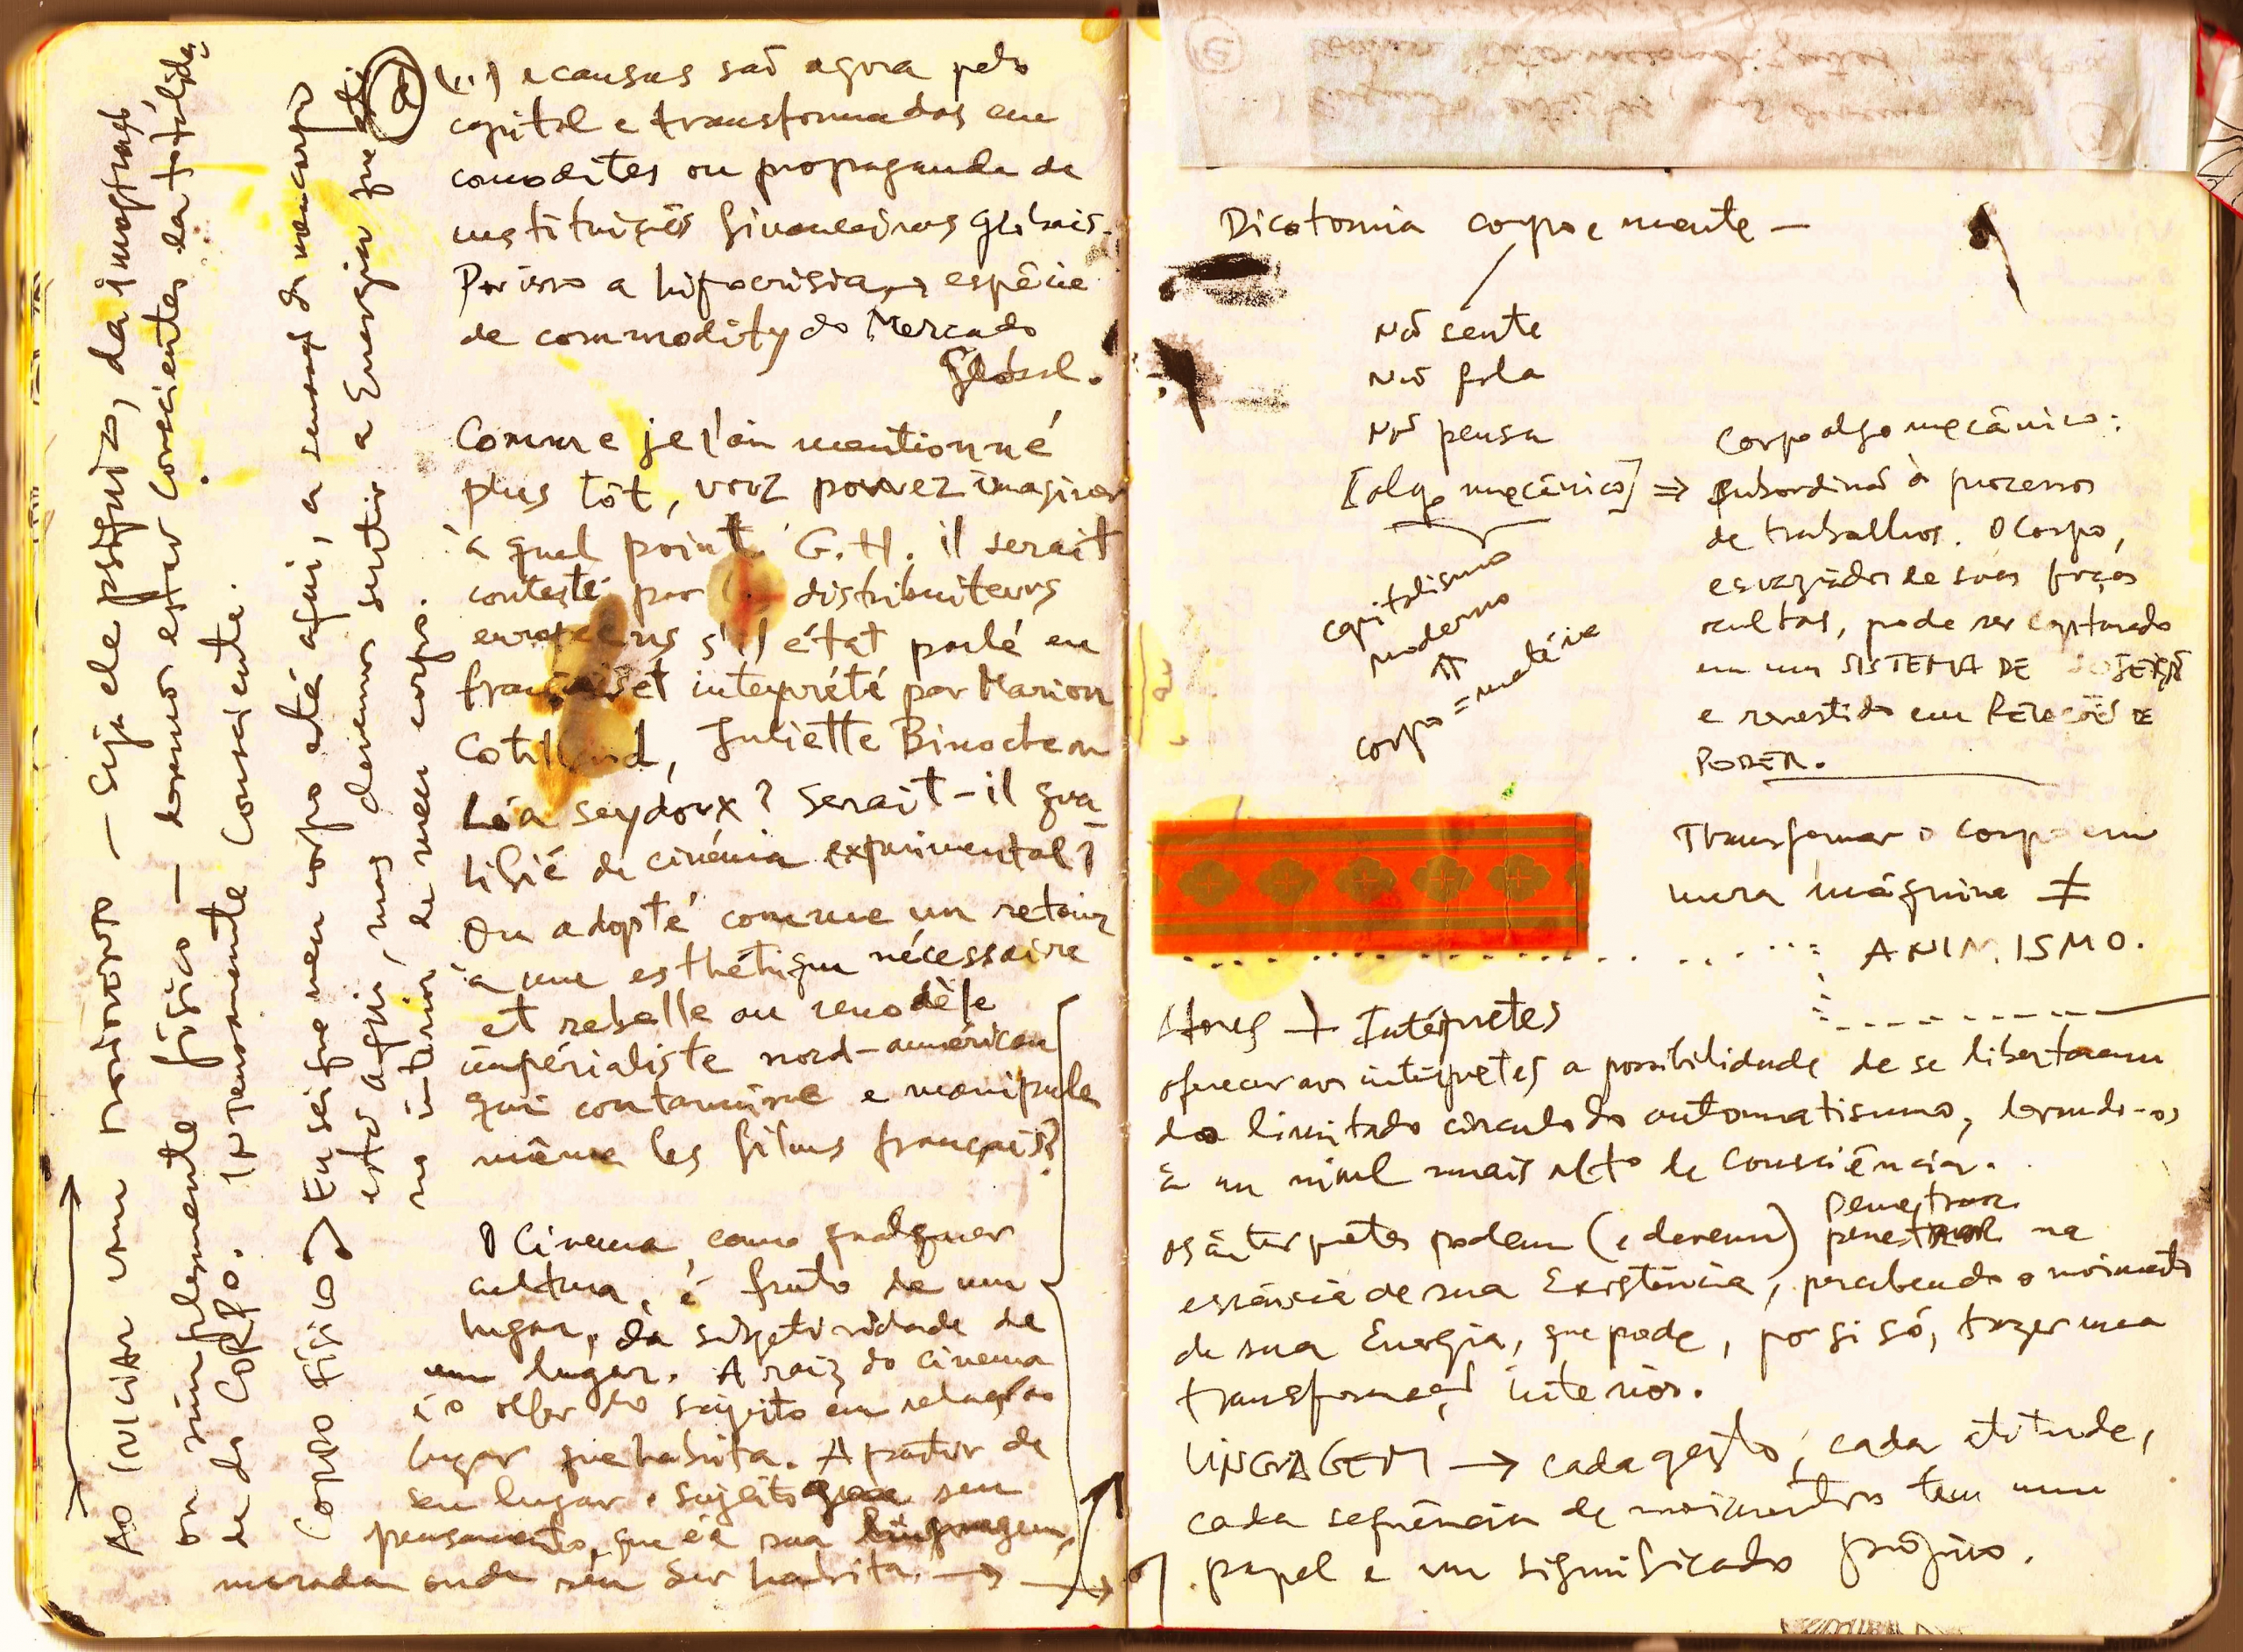 (...) e causas são agora pelo
capital e transformadas em
comodites ou propaganda de
instituições financeiras globais.
Por isso a hipocrisia → espécie
de commodity do Mercado
Global.
Comme je l'ai mentionné
plus tôt, vous pouvez imaginer
à quel point G.H. il serait
contesté par distributeurs
européens s'il était parlé en
français et interprété par Marion
Cotillard, Juliette Binoche ou
Léa Seydoux? Serait-il qua
lifié de cinéma expérimental?
Ou adopté comme un retour
à une esthétique nécessaire
et rebelle au modèle
impérialiste nord-américain
qui contamine e manipule
même les films français?
O Cinema, como qualquer
cultura, é fruto de um
lugar, da subjetividade de
um lugar. A raiz do cinema
é o olhar do sujeito em relação ao
lugar que habita. A partir de
seu lugar o sujeito gera seu
pensamento, que é a sua linguagem,
morada onde seu Ser habita. →
Ao iniciar um — seja ele psíquico, da imaginação
ou simplesmente físico — devemos estar conscientes da totalida
de do CORPO. Intensamente Consciente.
Corpo físico → Eu sei que meu corpo está aqui, a sensação de meu corpo
está aqui, mas devemos sentir a Energia que está
no interior de meu corpo.
Dicotomia corpo e mente —
Não sente
Não fala
Não pensa
[algo mecânico] ⇒
capitalismo
moderno
⇑
corpo = matéria
Corpo algo mecânico:
subordinado à processos
de trabalhos. O corpo,
esvaziados de suas forças
ocultas, pode ser capturado
em um SISTEMA DE SUJEIÇÃO
e revestido em RELAÇÕES DE
PODER.
Transformar o corpo em
mera máquina ≠
ANIMISMO.
Atores → Intérpretes
oferecer aos intérpretes a possibilidade de se libertarem
do limitado círculo do automatismo, levando-os
a um nível mais alto de Consciência.
Penetrar
os intérpretes podem (e devem) penetrar na
essência de sua Existência, percebendo o movimento
de sua Energia, que pode, por si só, trazer uma
transformação interior.
LINGUAGEM → cada gesto, cada atitude,
cada sequência de movimentos tem um
papel e um significado próprio.